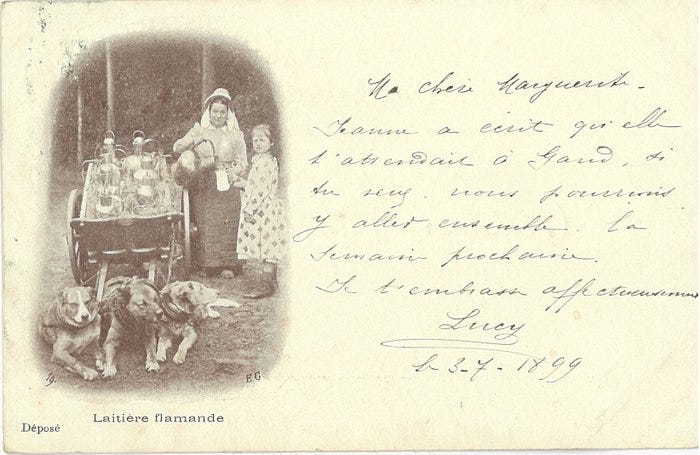 Ma chère Marguerite.
Jeanne a écrit qu'elle
t'attendait à Gand, si
tu veux, nous pourrions
y aller ensemble la
semaine prochaine.
Je t'embrasse affectueusement
Lucy
le 3-7-1899
19.
EG
Déposé
Laitière flamande